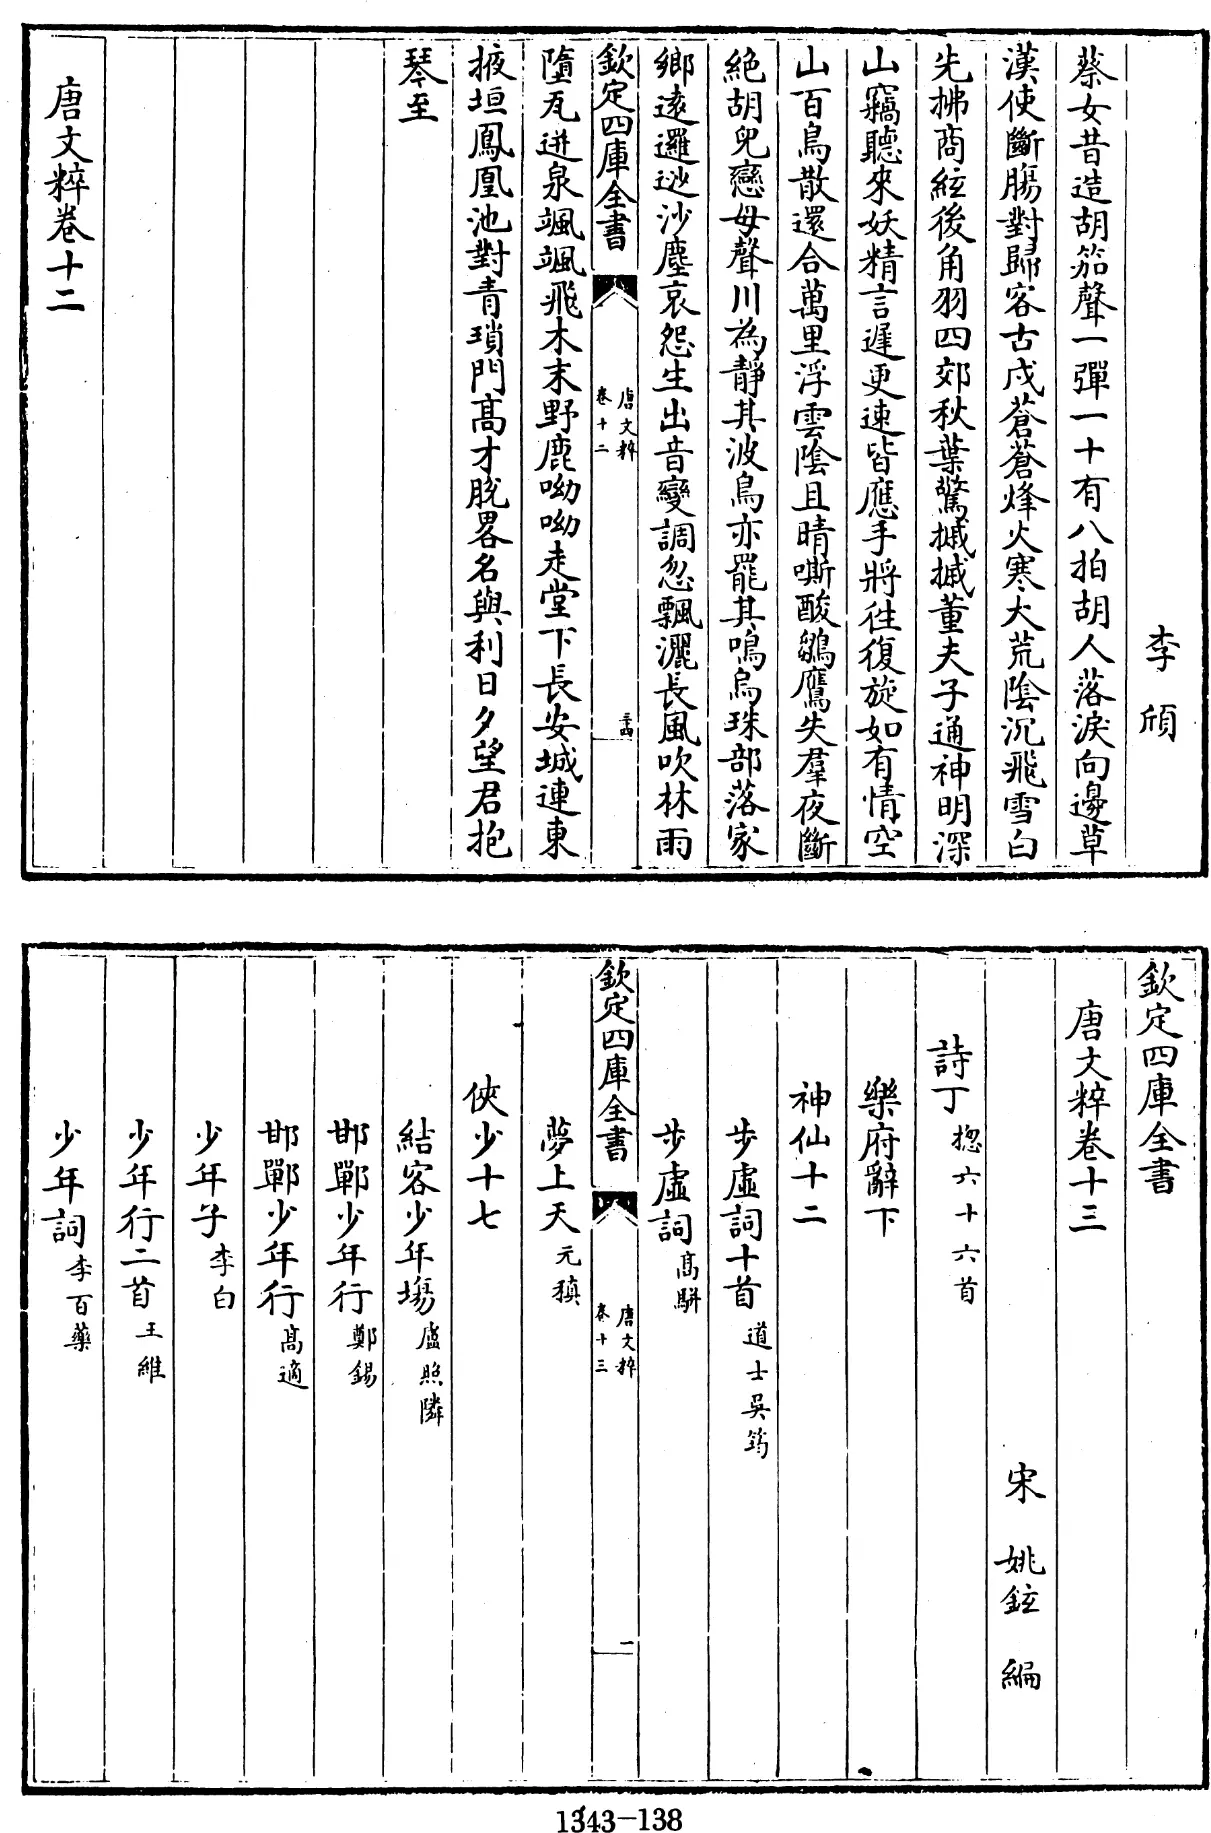 李頎
蔡女昔造胡笳聲一彈一十有八拍胡人落淚向邊草
漢使斷腸對歸客古戍蒼蒼烽火寒大荒陰沉飛雪白
先拂商絃後角羽四郊秋葉驚摵摵董夫子通神明深
山竊聽來妖精言遲更速皆應手將往復旋如有情空
山百鳥散還合萬里浮雲陰且晴嘶酸鶵鷹失羣夜斷
絶胡兒戀母聲川為靜其波鳥亦罷其鳴烏珠部落家
鄉逺邏逤沙塵哀怨生出音變調忽飄灑長風吹林雨
欽定四庫全書
唐文粹
卷十二
三十四
墮瓦迸泉颯颯飛木末野鹿呦呦走堂下長安城連東
掖垣鳳凰池對青瑣門髙才脫畧名與利日夕望君抱
琴至
唐文粹卷十二
欽定四庫全書
唐文粹卷十三
宋 姚鉉 編
詩丁 揔六十六首
樂府辭下
神仙十二
步虛詞十首 道士吳筠
步虛詞 髙駢
欽定四庫全書
唐文粹
卷十三
一
夢上天 元稹
俠少十七
結客少年塲 盧照隣
邯鄲少年行 鄭錫
邯鄲少年行 髙適
少年子 李白
少年行二首 王維
少年詞 李百藥
1343-138